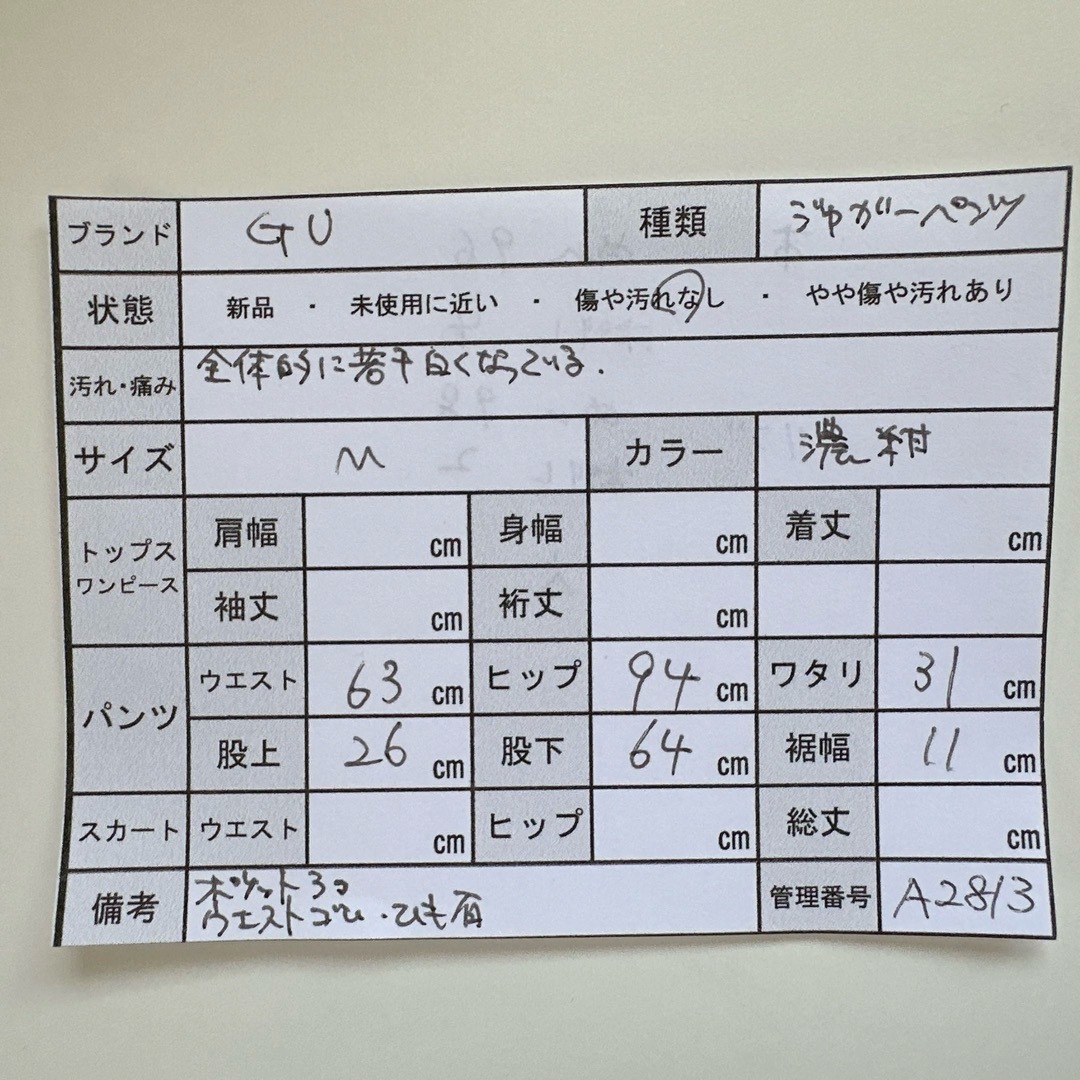 ブランド GU 種類 ジョガーパンツ
状態 新品 ・ 未使用に近い ・ 傷や汚れなし ・ やや傷や汚れあり
汚れ・痛み 全体的に若干白くなっている.
サイズ M カラー 濃紺
トップス ワンピース 肩幅 cm 身幅 cm 着丈 cm
袖丈 cm 裄丈 cm
パンツ ウエスト 63 cm ヒップ 94 cm ワタリ 31 cm
股上 26 cm 股下 64 cm 裾幅 11 cm
スカート ウエスト cm ヒップ cm 総丈 cm
備考 ポケット3つ
ウエストゴム・ひも有
管理番号 A2813